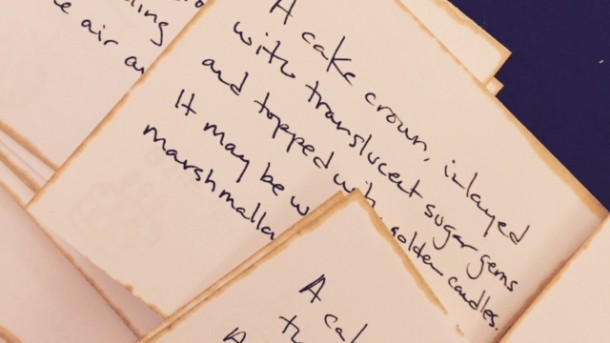 ding
e air a
A cake crown, inlayed
with translucent sugar gems
and topped with golden candles.
It may be w
marshmallo
A cak
t
A